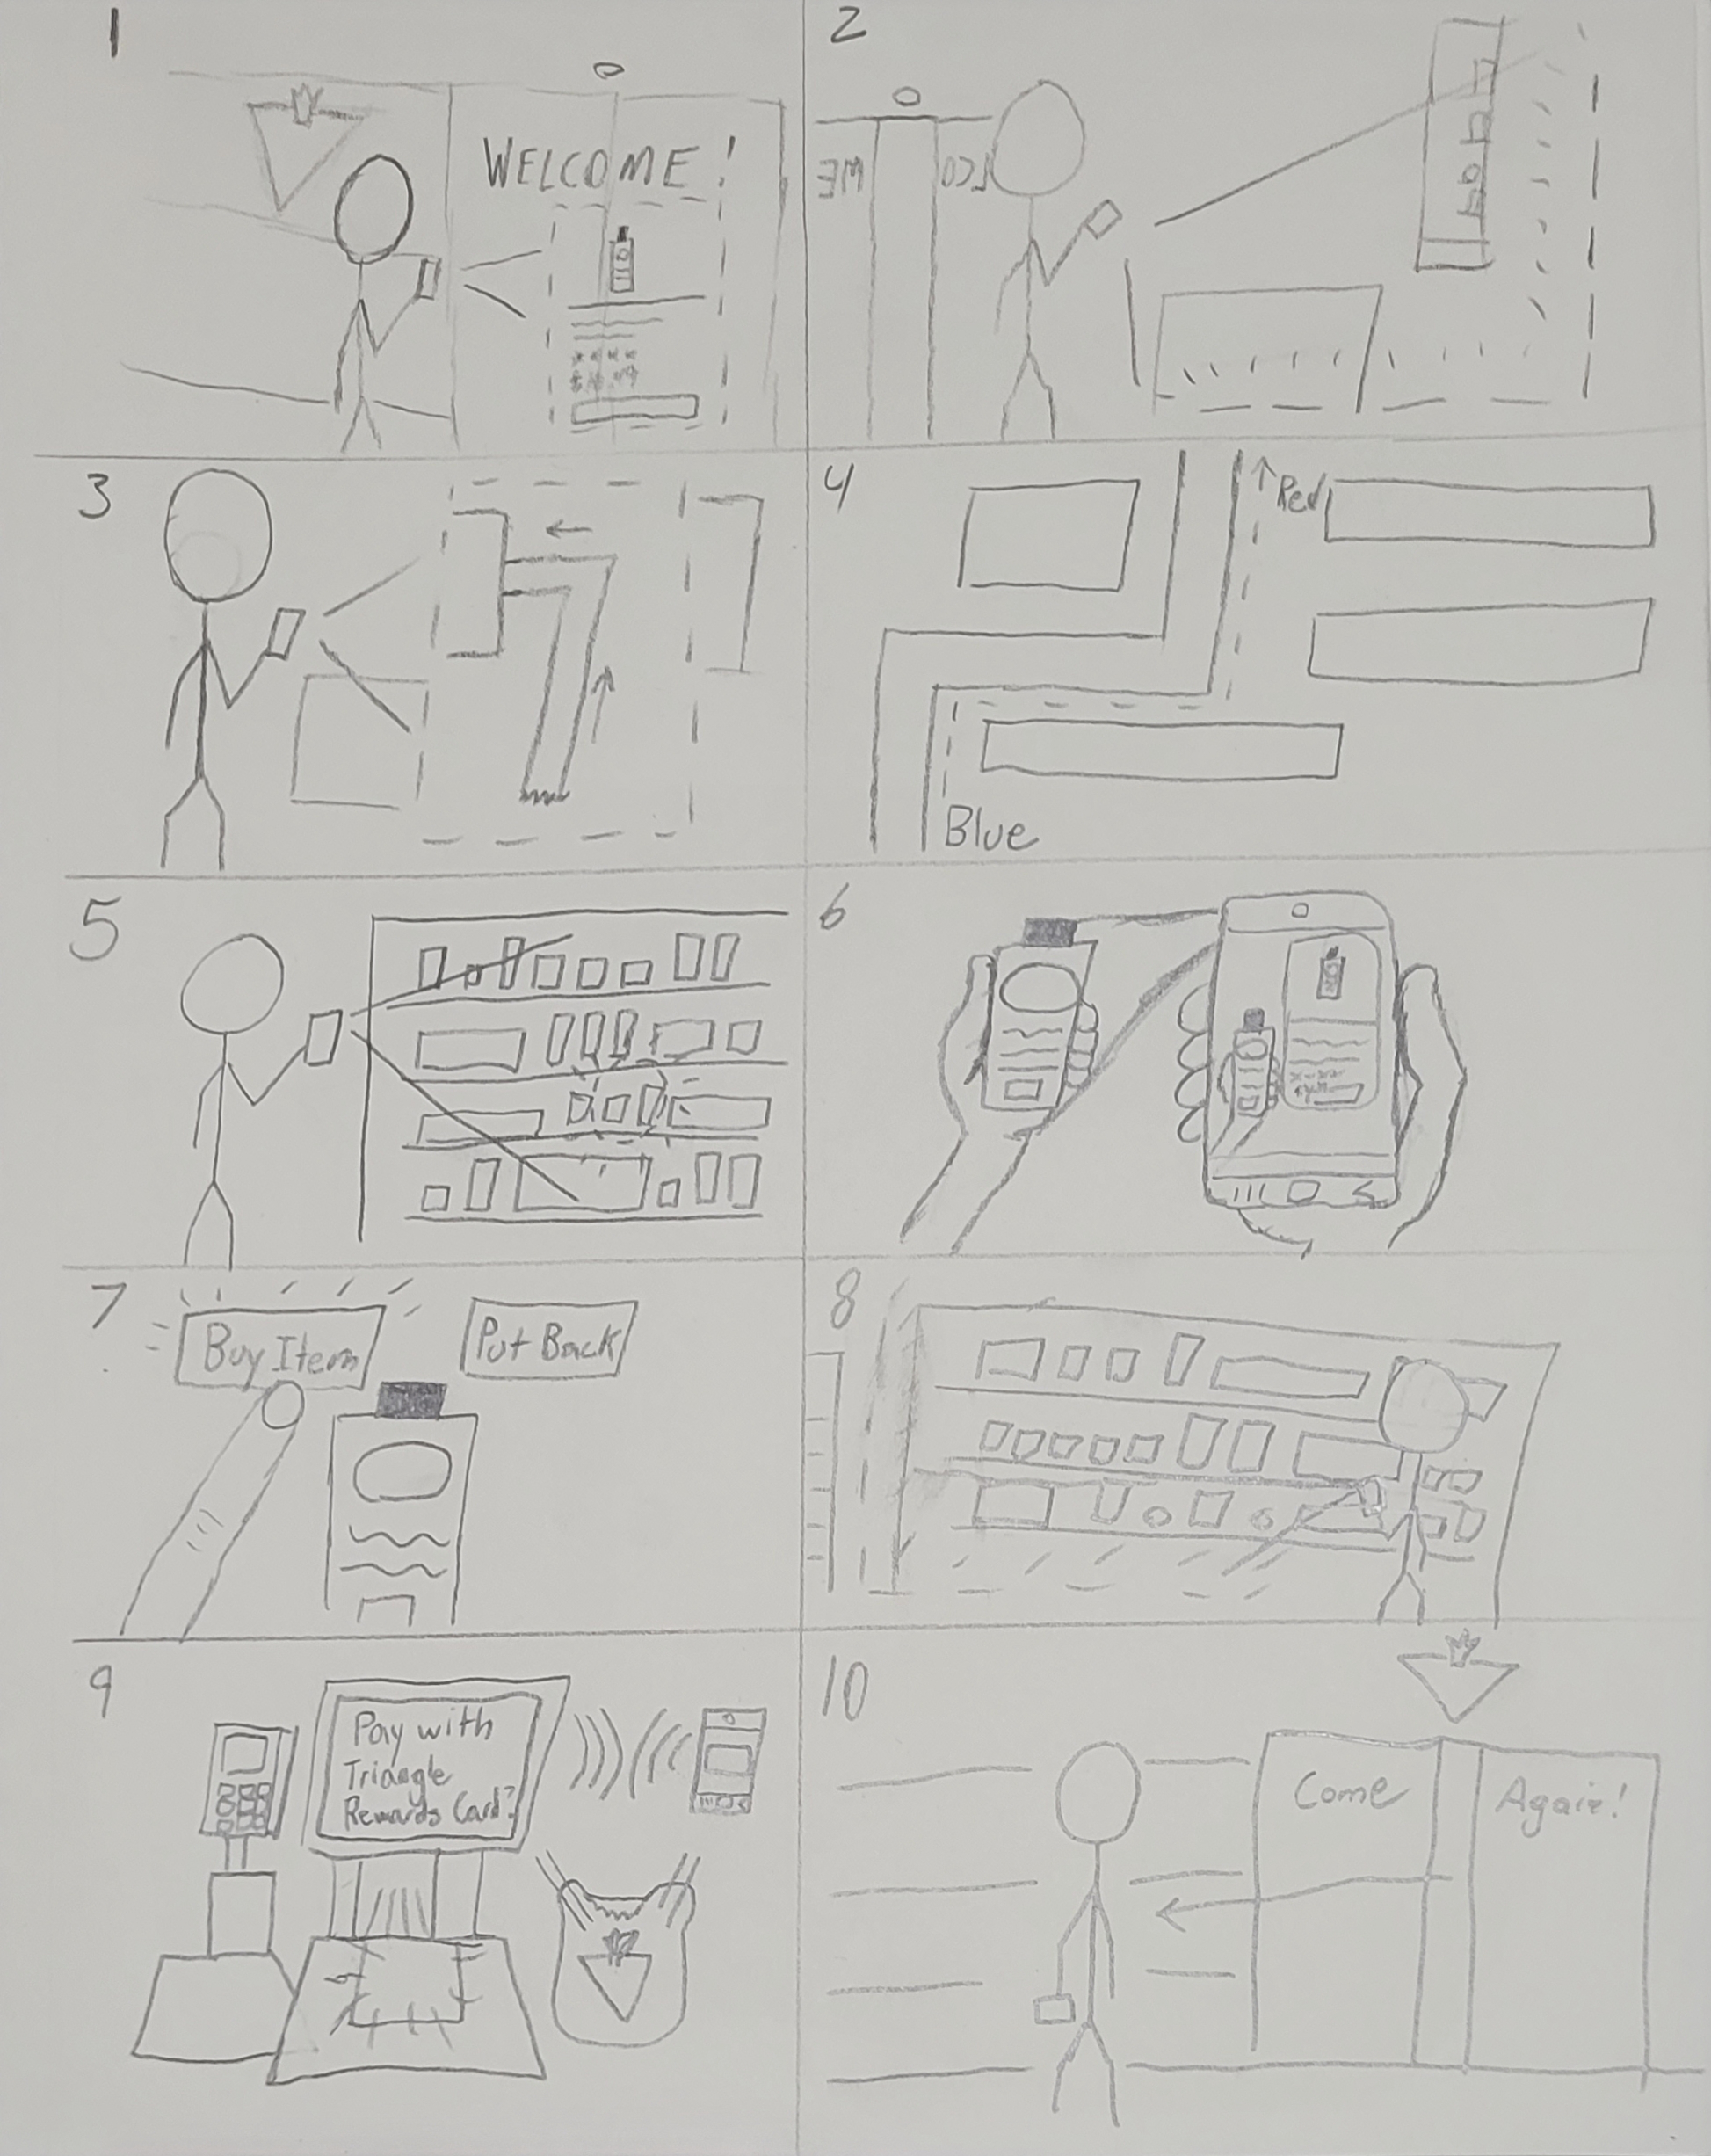 1
WELCOME!
2
3
4
Red
Blue
5
6
7
Buy Item
Put Back
8
9
Pay with
Triangle
Rewards Card?
10
Come
Again!